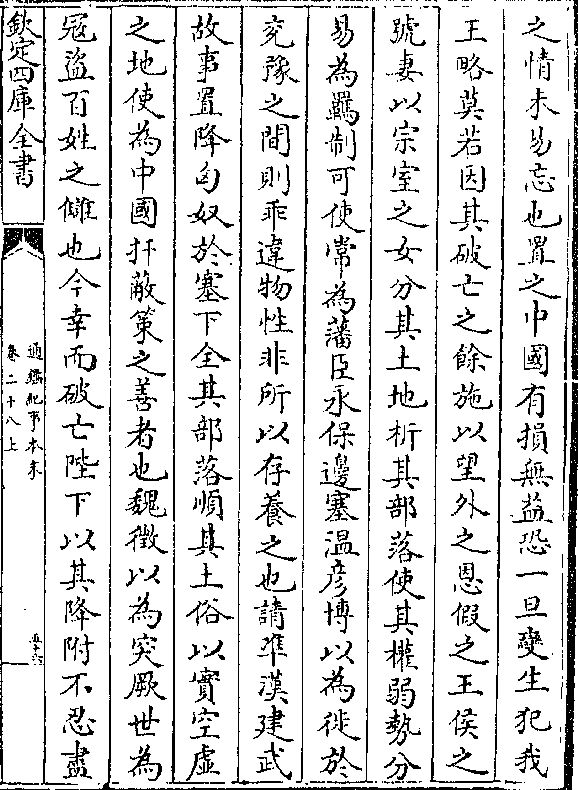 之情未易忘也置之中國有損無益恐一旦變生犯我
王略莫若因其破亡之餘施以望外之恩假之王侯之
號妻以宗室之女分其土地析其部落使其權弱勢分
易為羈制可使常為藩臣永保邊塞温彦博以為徙於
兖豫之間則乖違物性非所以存養之也請準漢建武
故事置降匈奴於塞下全其部落順其土俗以實空虛
之地使為中國扞蔽策之善者也魏徵以為突厥世為
冦盜百姓之讎也今幸而破亡陛下以其降附不忍盡
欽定四庫全書
通鑑紀事本末
卷二十八上